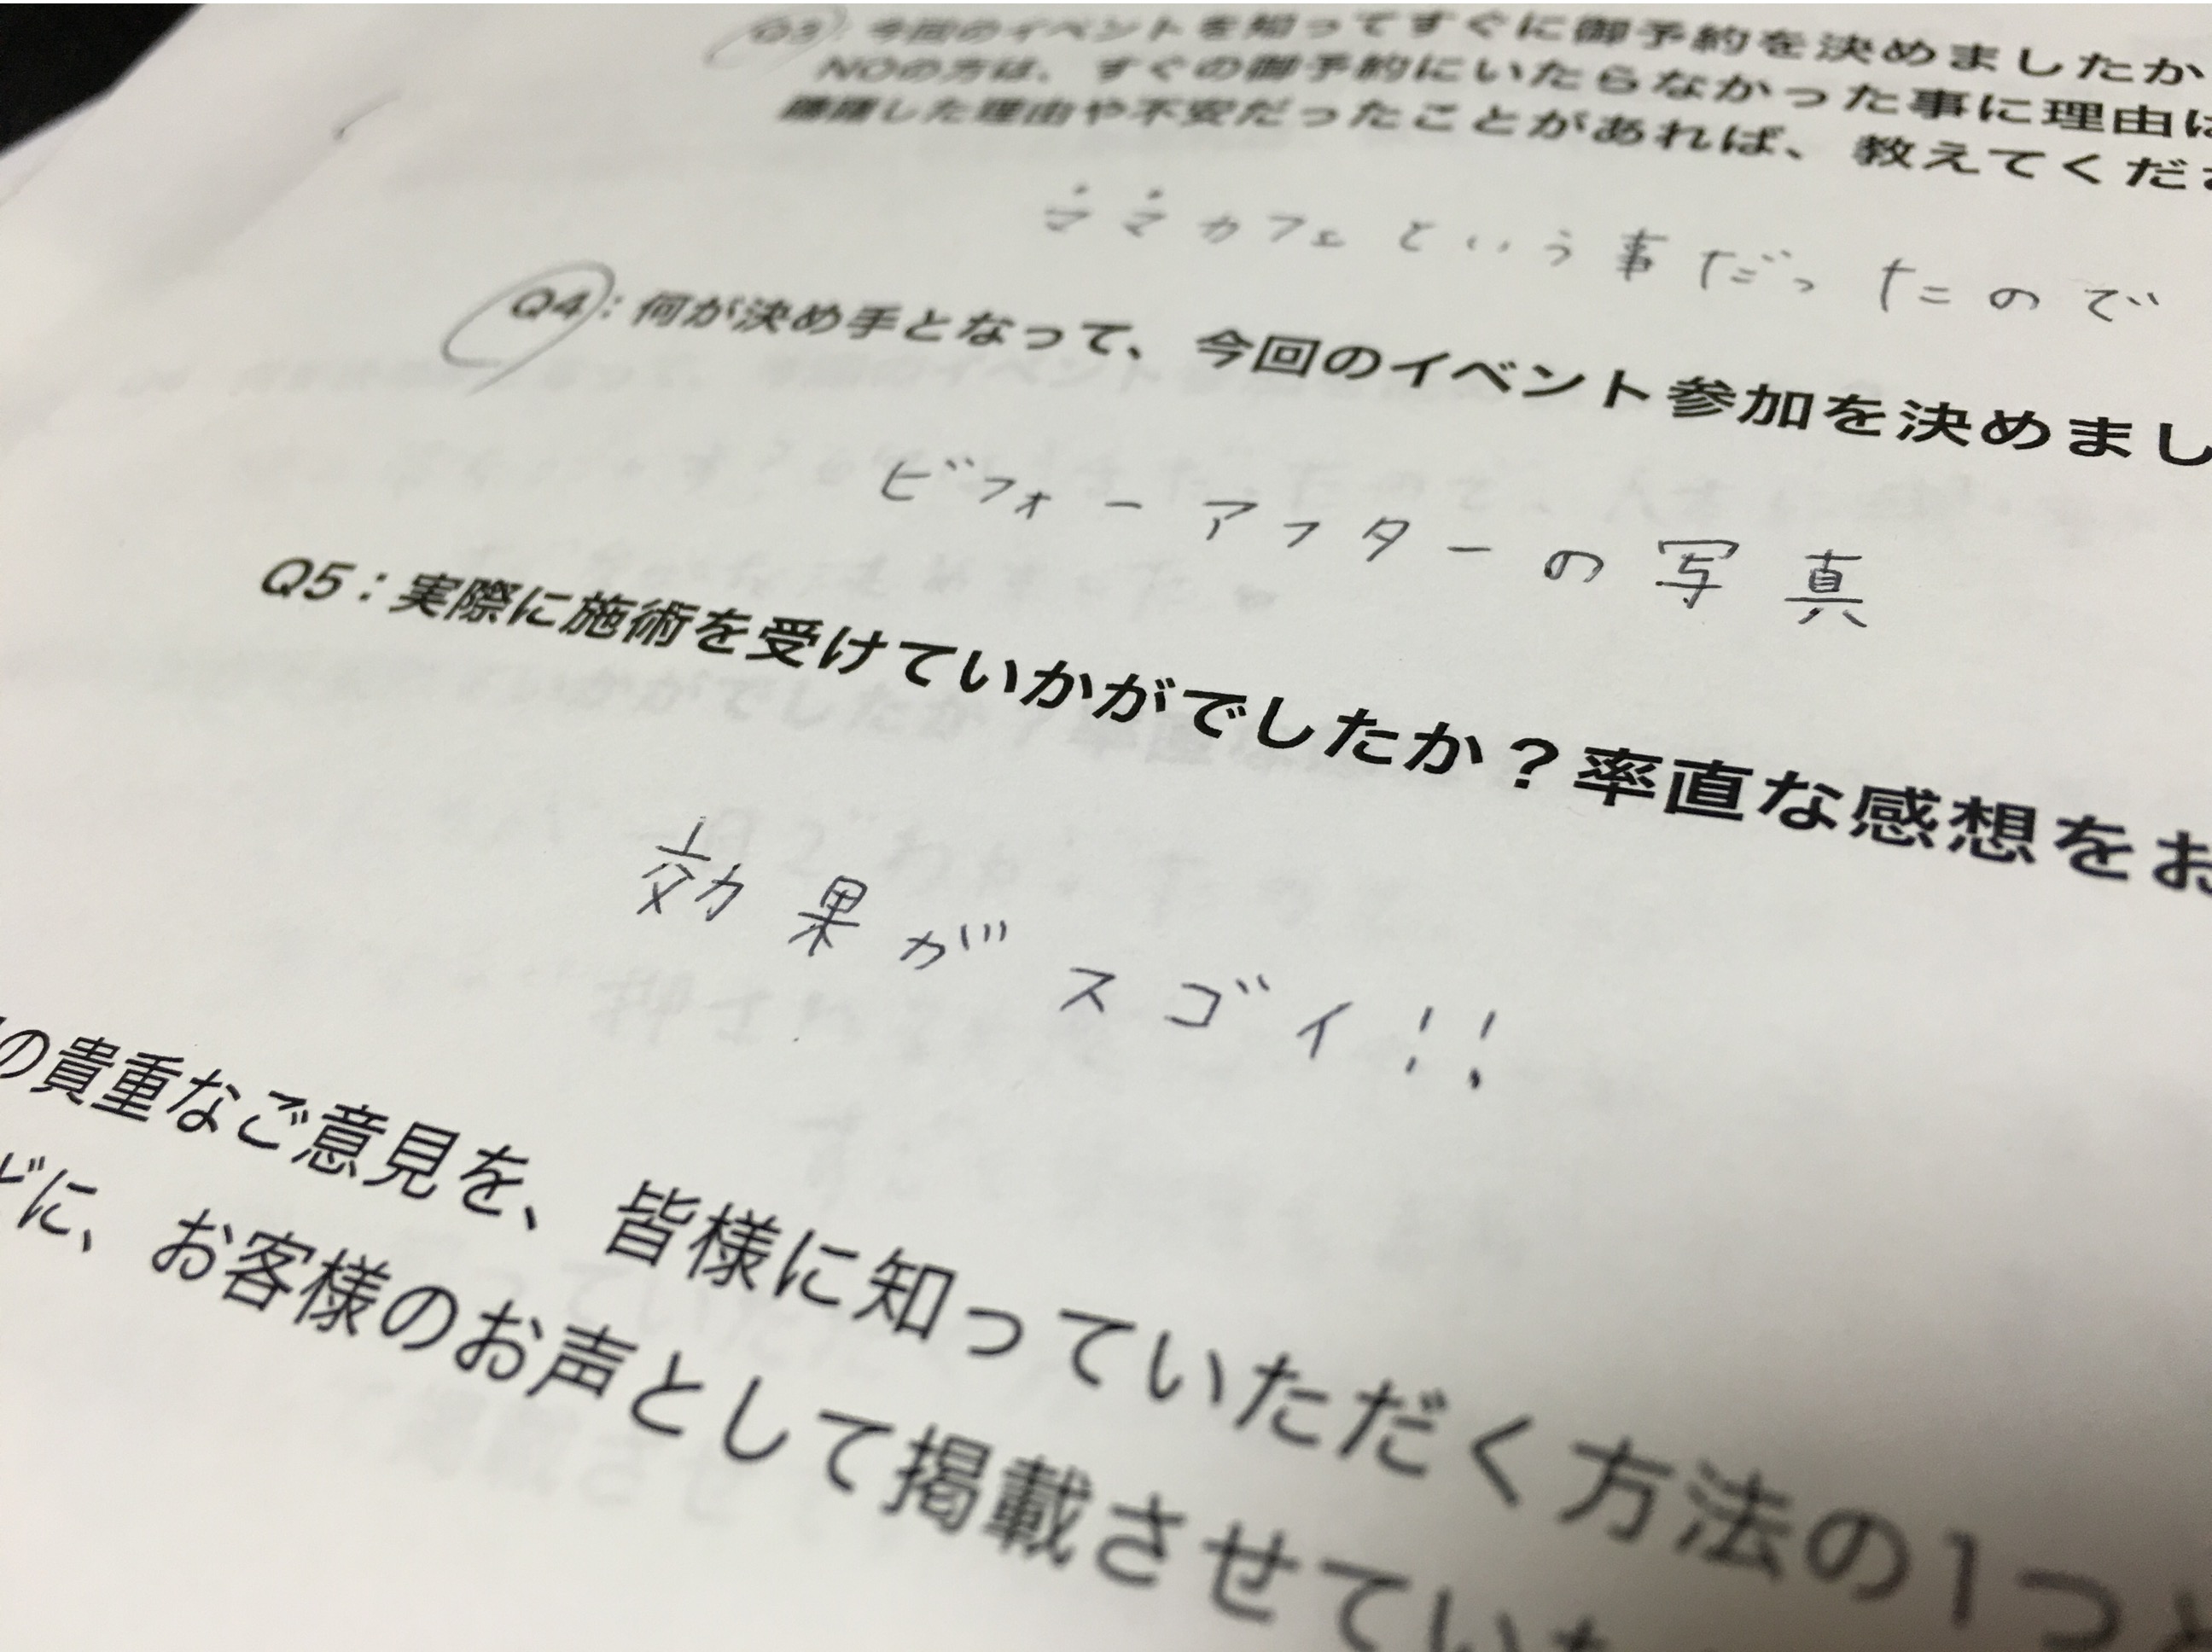 Q3: 今回のイベントを知ってすぐに御予約を決めましたか
NOの方は、すぐの御予約にいたらなかった事に理由は
躊躇した理由や不安だったことがあれば、教えてくださ
カフェという事だったので
Q4: 何が決め手となって、今回のイベント参加を決めまし
ビフォーアフターの写真
Q5:実際に施術を受けていかがでしたか?率直な感想をお
効果がスゴイ!!
の貴重なご意見を、皆様に知っていただく方法の1つ
どに、お客様のお声として掲載させてい